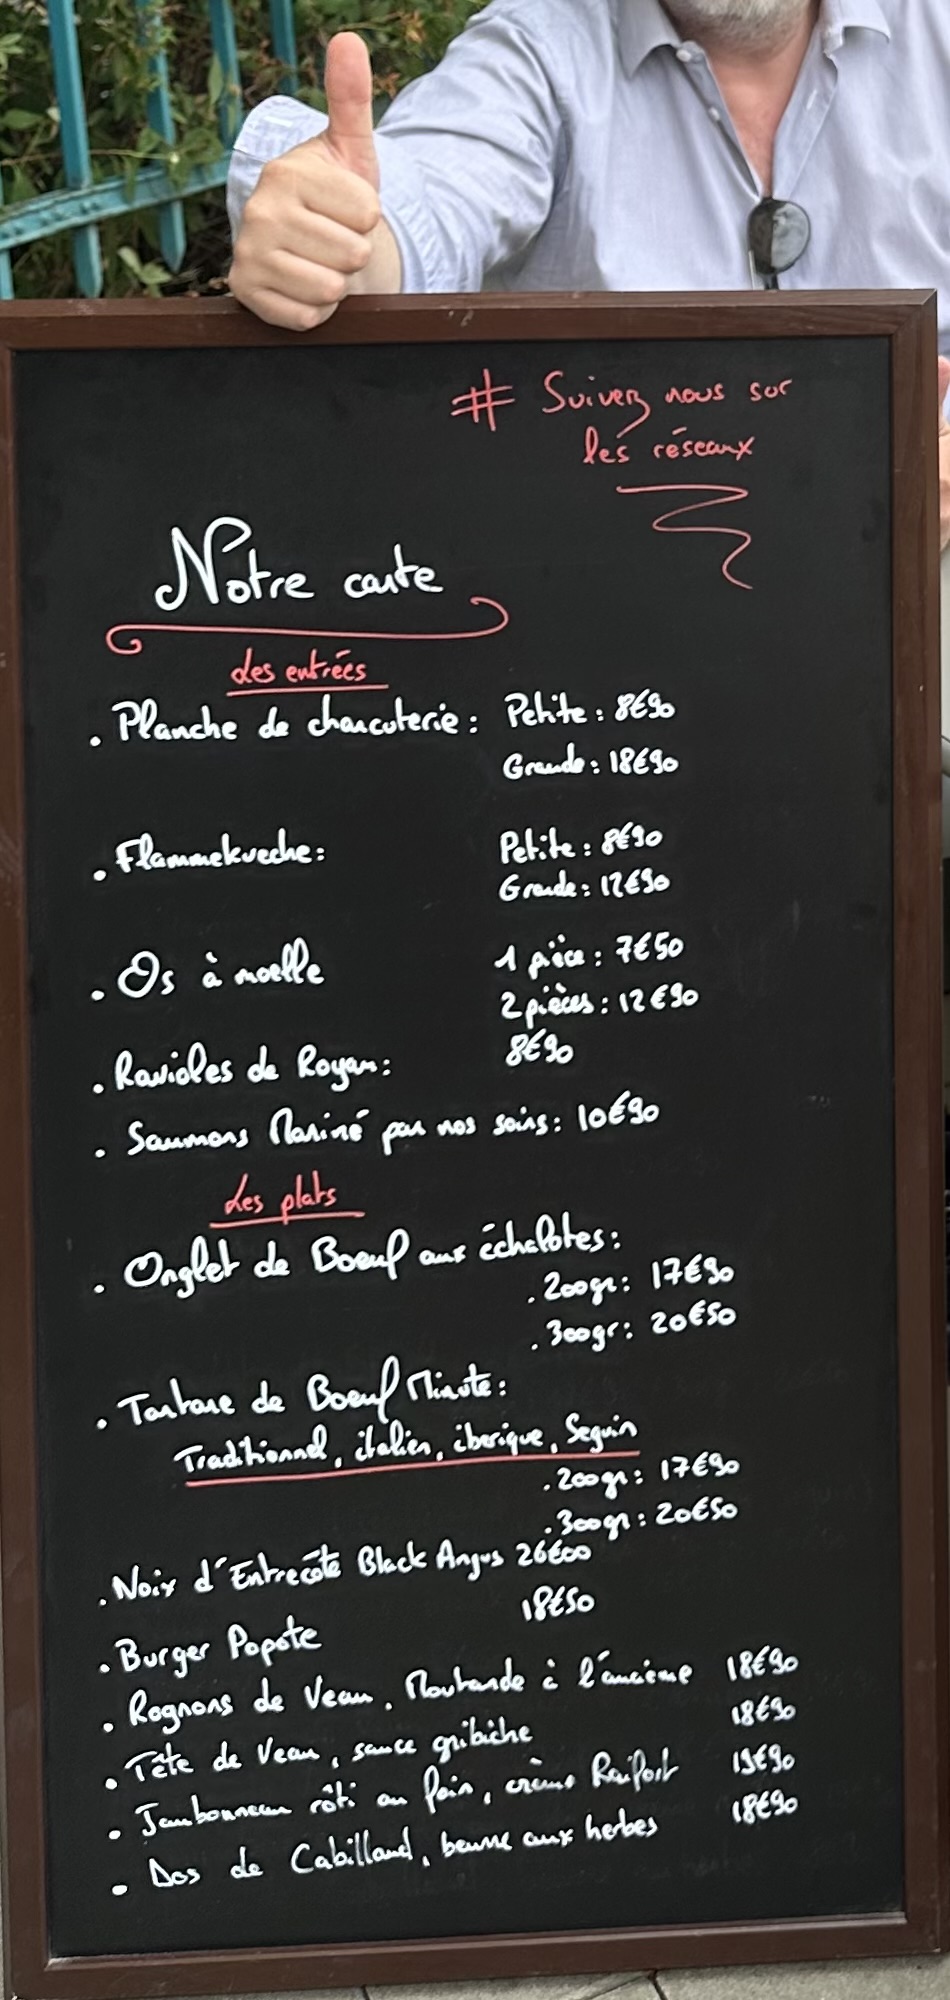 # Suivez nous sur
les réseaux
Notre carte
Les entrées
. Planche de charcuterie : Petite : 8€90
Grande : 18€90
. Flammekueche : Petite : 8€90
Grande : 12€90
. Os à moelle 1 pièce : 7€50
2 pièces : 12€90
. Ravioles de Royan : 8€90
. Saumons Mariné par nos soins : 10€90
Les plats
. Onglet de Boeuf aux échalotes :
. 200gr : 17€90
. 300gr : 20€50
. Tartare de Boeuf Minute :
Traditionnel, italien, iberique, Seguin
. 200gr : 17€90
. 300gr : 20€50
. Noix d'Entrecôte Black Angus 26€00
. Burger Popote 18€50
. Rognons de Veau, Moutarde à l'ancienne 18€90
. Tête de Veau, sauce gribiche 18€90
. Jambonneau rôti au foin, crème Raifort 19€90
. Dos de Cabillaud, beurre aux herbes 18€90